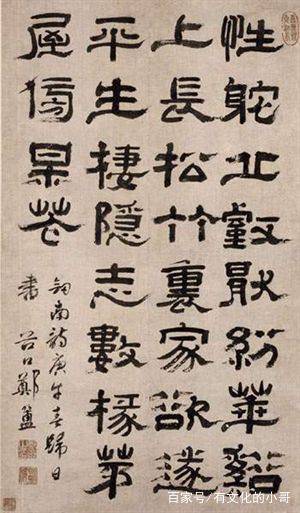 性躭丘壑厭紛華谿
上長松竹裏家欲遂
平生棲隱志數椽茅
屋傍呆花
劍南詩庚午春歸日
書 谷口鄭簠
百家号/有文化的小哥